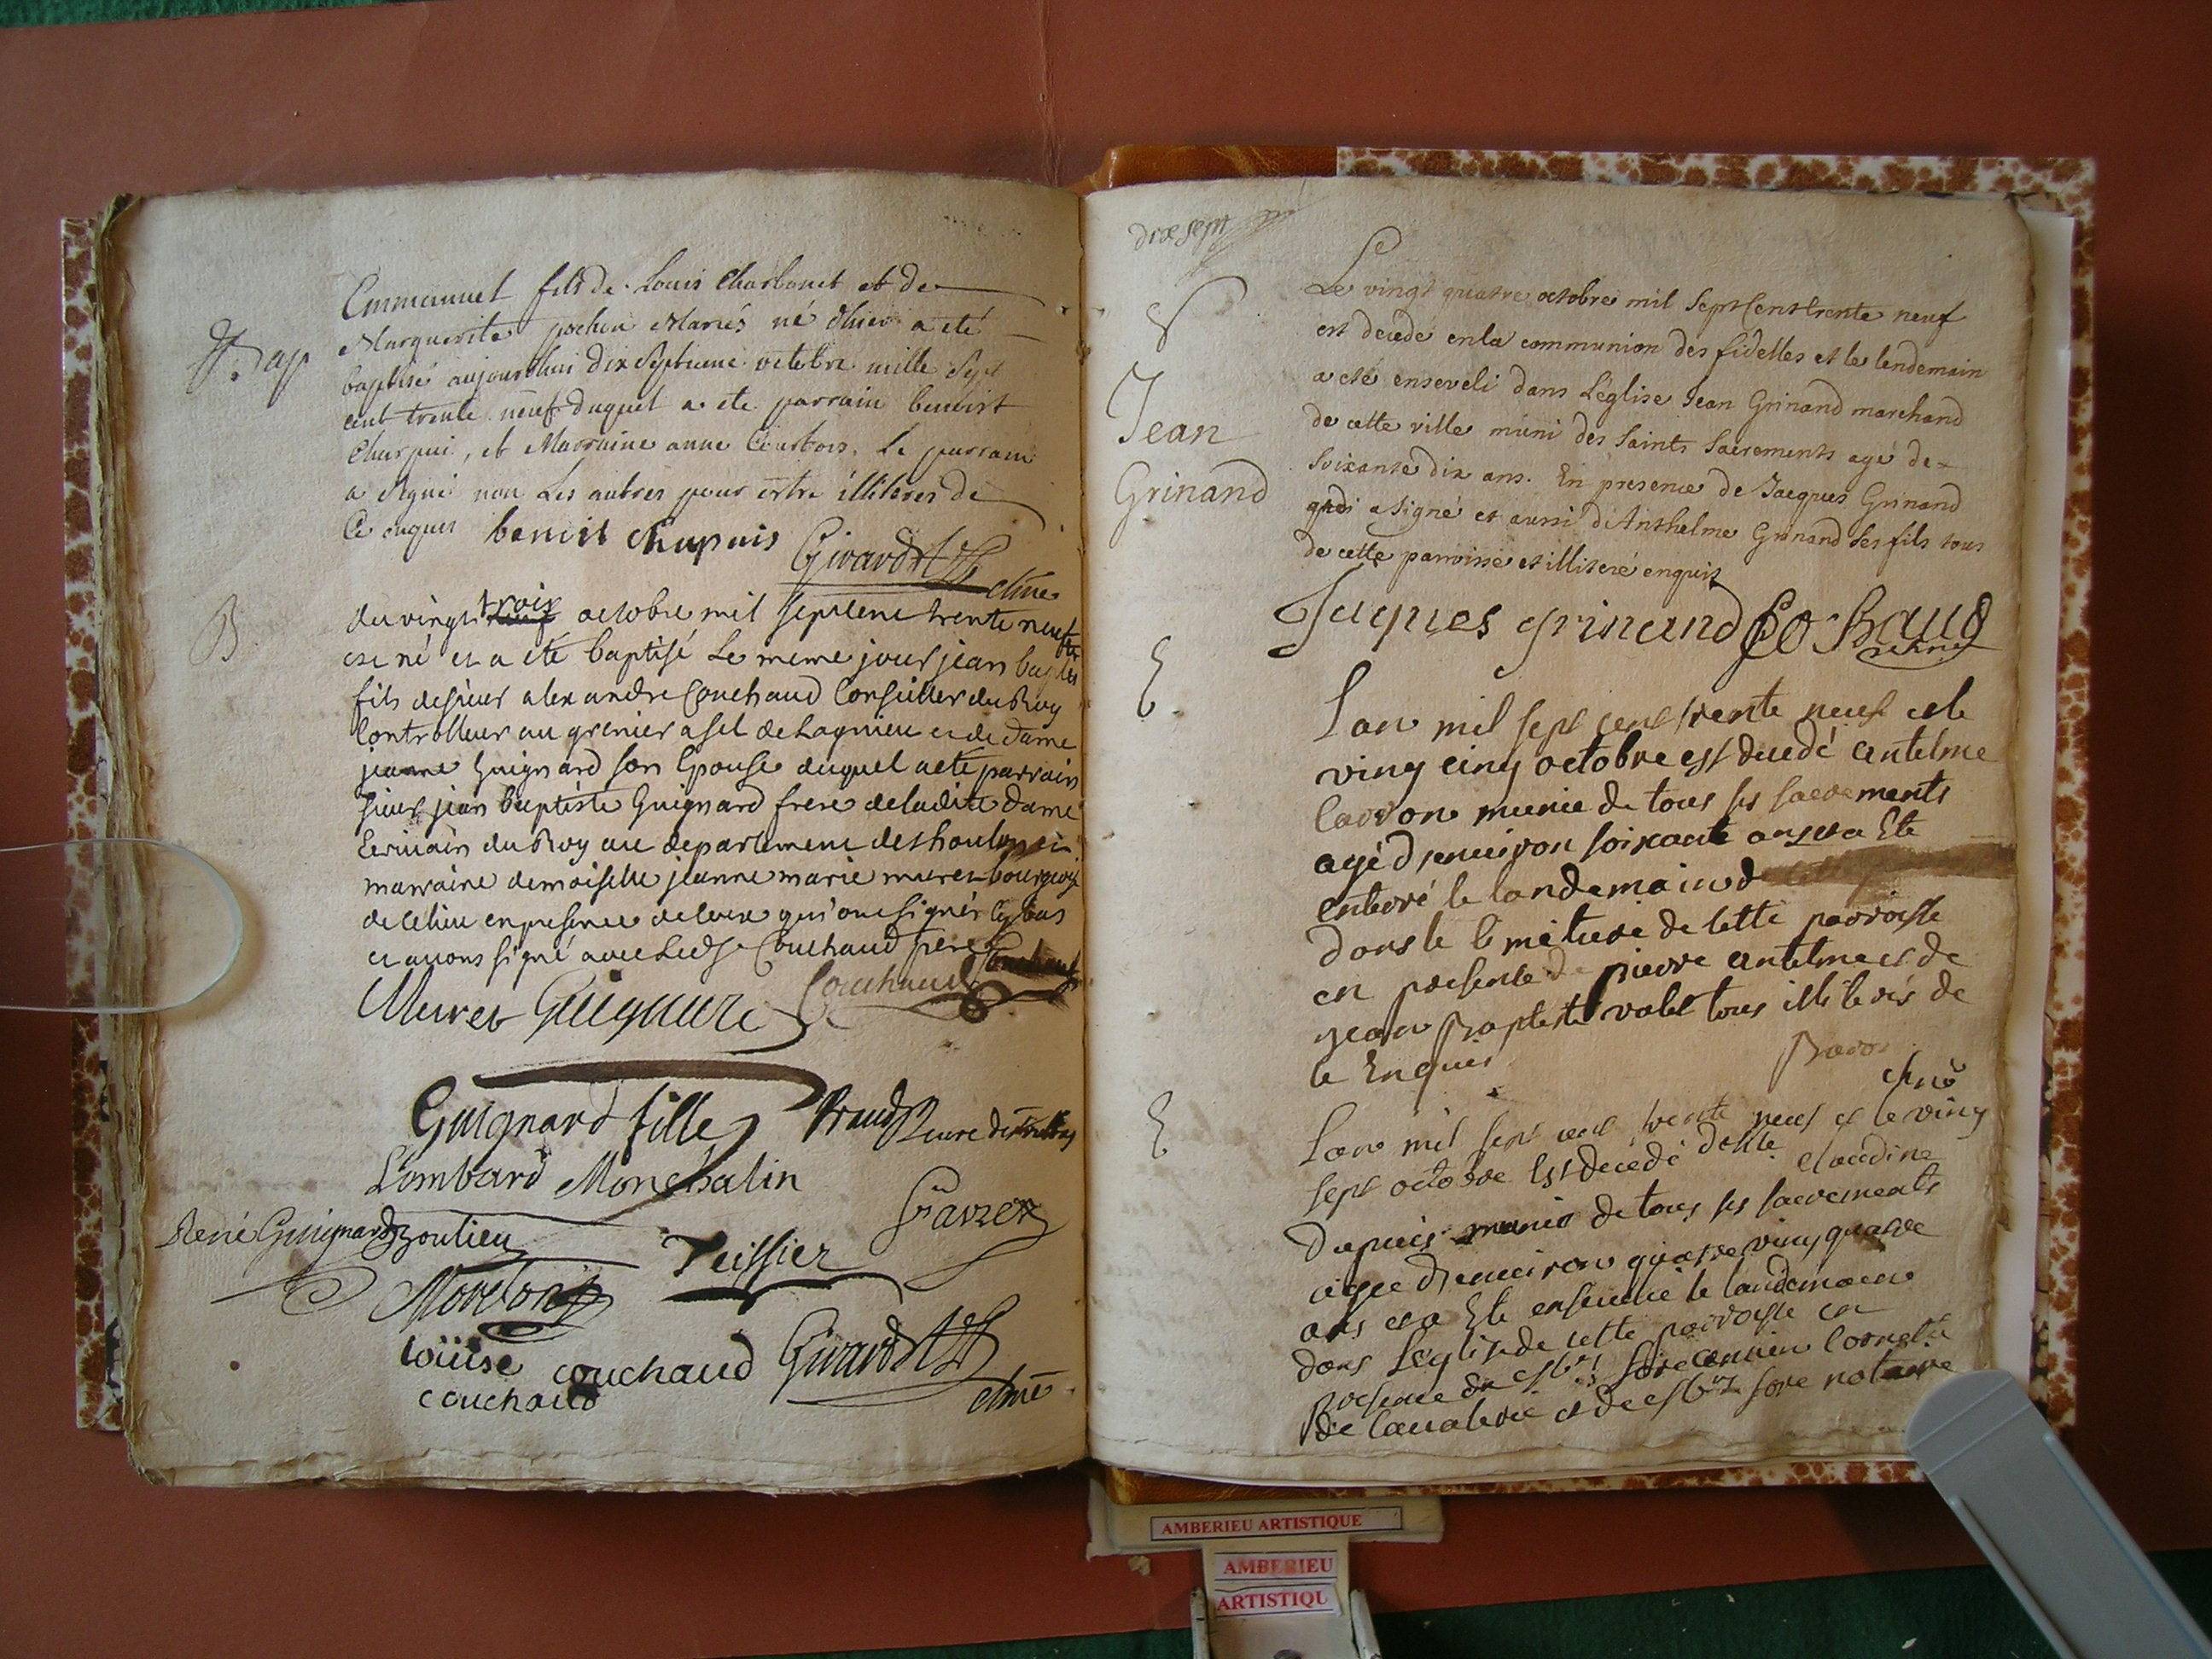 Bap
Emmanuel fils de Louis Charbonet et de
Marguerite pochu Mariés né d'hier a eté
baptisé aujourdhui dix septieme octobre mille sept
cent trente neuf duquel a ete parrain benoist
Charpui, et Marraine anne Courtois. Le parrain
a signé non Les autres pour estre illiteres de
Ce enquis benist Chapuis Girard
chne
B
du vingt trois octobre mil sept cent trente neuf
est né et a eté baptisé Le meme jour jean baptiste
fils de sieur alexandre Couchaud Conseiller du Roy
Controlleur au grenier a sel de Lagnieu et de Dame
jeanne Guignard son Epouse duquel a eté parrain
sieur jean baptiste Guignard frere de ladite Dame
Ecrivain du Roy au departement de thoulon et
marraine demoiselle jeanne marie muret bourgeoise
de ce lieu en presence de ceux qui ont signés cy bas
et avons signé avec Led Sr Couchaud pere
Muret Guignard Couchaud
Guignard fille Braud
Lombard Monchalin
René Guignard Teissier
Louise couchaud Girard
couchaud chne
dixsept
Jean
Grinand
Le vingt quatre octobre mil Sept Cent trente neuf
est decedé en la communion des fidelles et le lendemain
a eté enseveli dans L'église Jean Grinand marchand
de cette ville muni des Saints Sacrements agé de
Soixante dix ans. En presence de Jacques Grinand
qui a signé et aussi d'Anthelme Grinand ses fils tous
de cette parroisse et illiteré enquis
Jaques grinand
E
Lan mil sept cent trente neuf et le
ving cinq octobre est decedé antelme
Carron munie de tous ses sacrements
agé d'enuiron soixante ans et a Eté
enterré le landemain
dans le simetiere de cette parroisse
en presence de pierre antelme et de
jean Baptiste valet tous illiterés de
ce Enquis
chne
E
Lan mil sept cent trente neuf et le ving
sept octobre Est decedé delle claudine
Dupuis munie de tous ses sacrements
agee d'enuiron quatre ving quatre
ans et a Eté enseuelie le landemain
dans L'eglise de cette parroisse en
presence de
de Caualerie et de notaire
AMBERIEU ARTISTIQUE
AMBERIEU
ARTISTIQU